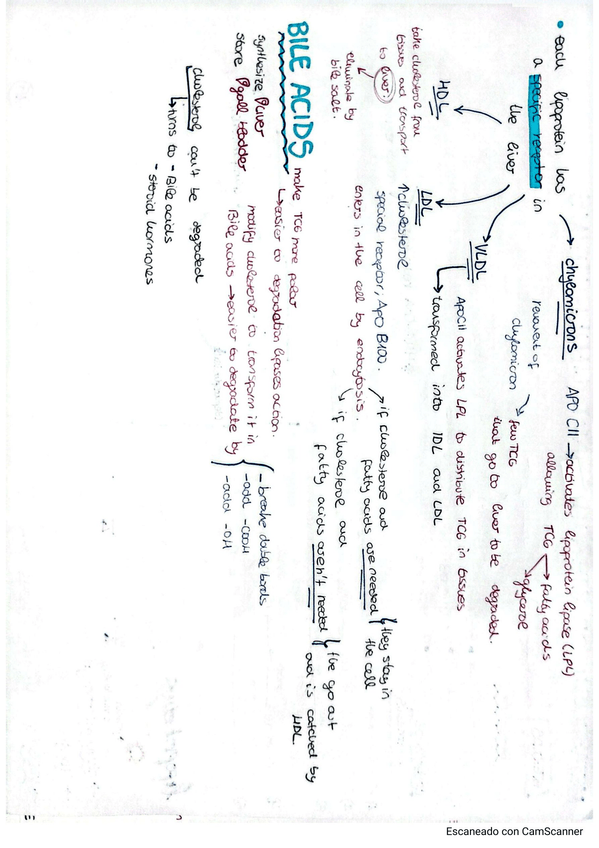 • each lipoprotein has
a specific receptor in
the liver
chylomicrons
APO CII → activates lipoprotein lipase (LPL)
allowing TCG → fatty acids
→ glycerol
remnant of
chylomicron → few TCG
that go to liver to be degraded.
VLDL
APOCII activates LPL to distribute TCG in tissues
→ transformed into IDL and LDL
LDL
↑cholesterol
special receptor, Apo B100.
enters in the cell by endocytosis.
→ if cholesterol and
fatty acids are needed { they stay in
the cell
→ if cholesterol and
fatty acids aren't needed { the go out
and is catched by
HDL.
HDL
take cholesterol from
tissues and transport
to liver.
eliminate by
bile salt.
BILE ACIDS
make TCG more polar
↳ easier to degradation lipases action.
synthesize liver
store gall bladder
modify cholesterol to transform it in
Bile acids → easier to degradate by
- breake double bonds
- add -COOH
- add -OH
cholesterol can't be degraded
↳ turns to - Bile acids
- steroid hormones
Escaneado con CamScanner